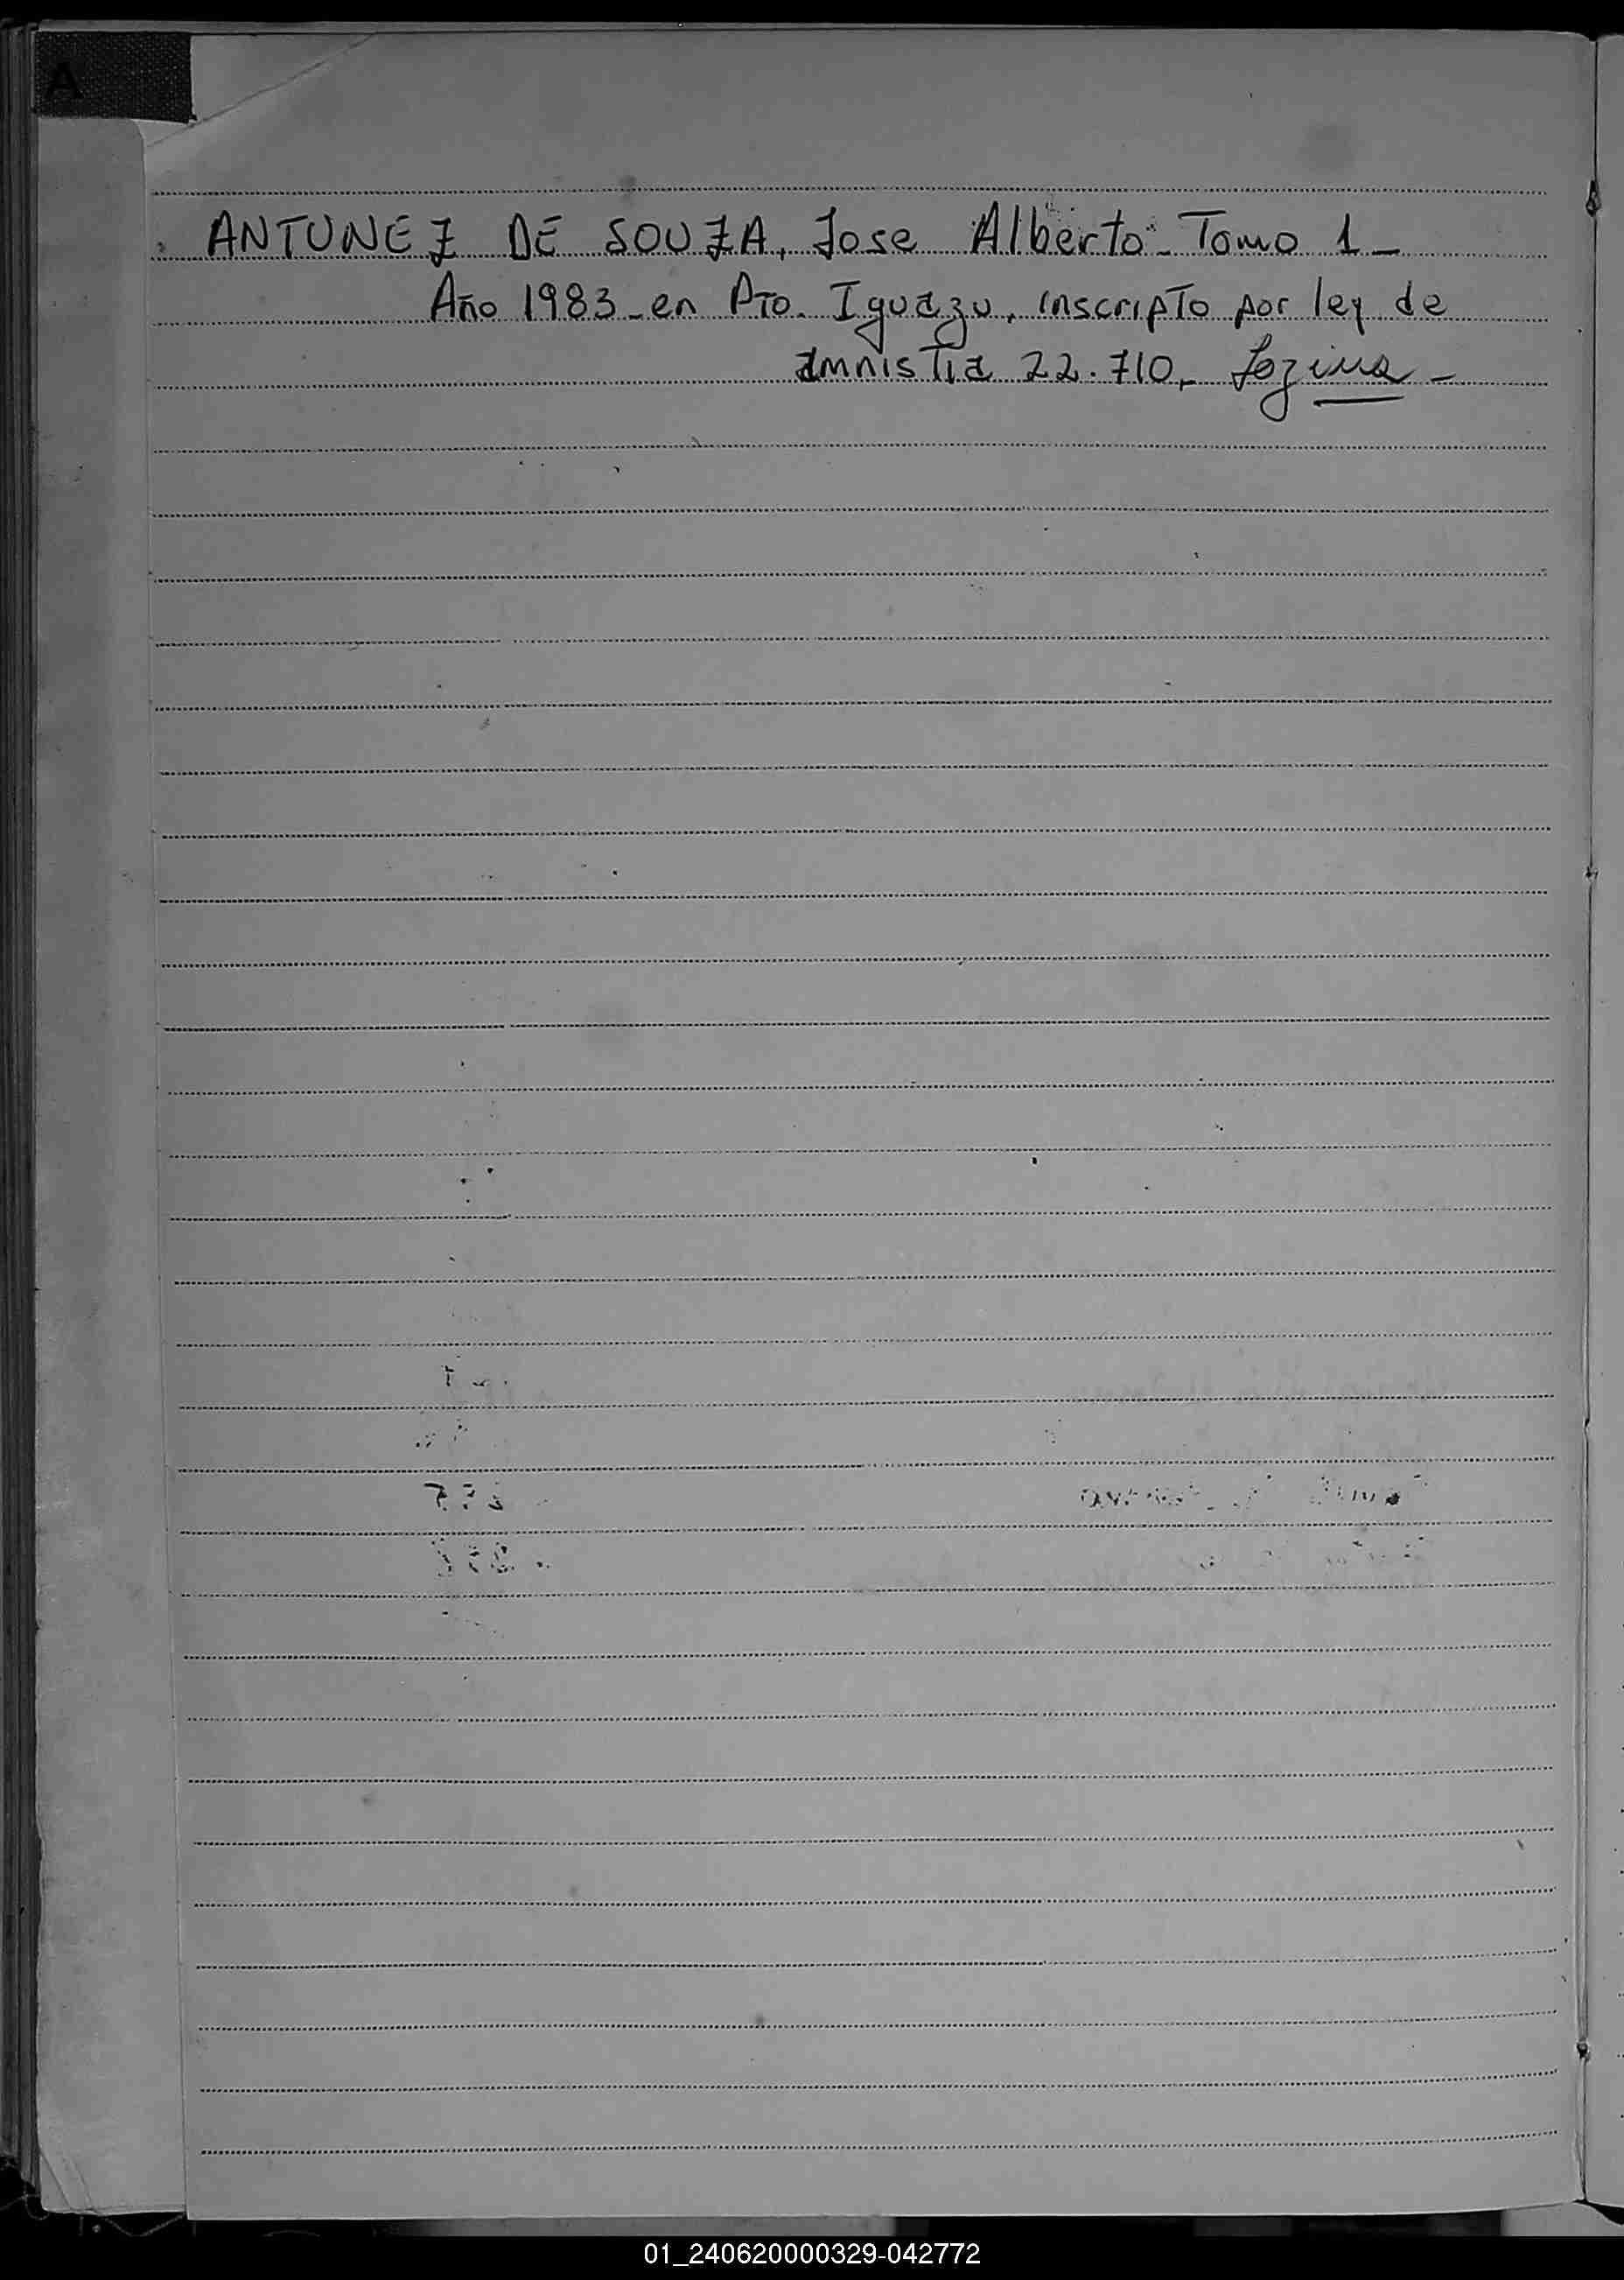 A
ANTUNEZ DE SOUZA, Jose Alberto - Tomo 1 -
Año 1983 - en Pto. Iguazu, inscripto por ley de
amnistia 22.710.-
01_240620000329-042772